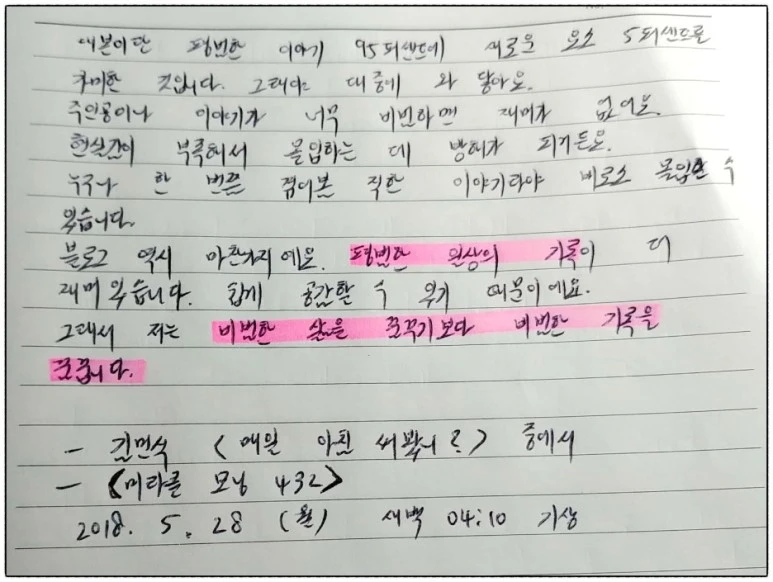 대본이란 평범한 이야기 95퍼센트에 새로운 요소 5퍼센트를
가미한 것입니다. 그래야 대중에 와 닿아요.
주인공이나 이야기가 너무 비범하면 재미가 없어요.
현실감이 부족해서 몰입하는 데 방해가 되거든요.
누구나 한 번쯤 겪어본 직한 이야기라야 비로소 몰입할 수
있습니다.
블로그 역시 마찬가지예요. 평범한 일상의 기록이 더
재미있습니다. 쉽게 공감할 수 있기 때문이에요.
그래서 저는 비범한 삶을 꿈꾸기보다 비범한 기록을
꿈꿉니다.
- 김민식 <매일 아침 써봤니?> 중에서
- <미라클 모닝 432>
2018. 5. 28 (월) 새벽 04:10 기상